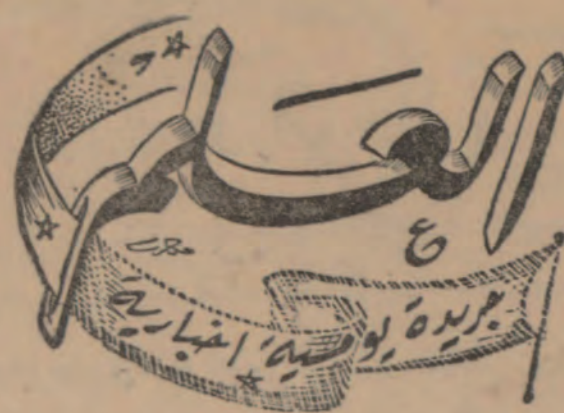 العلم
ع
جريدة يومية اخبارية